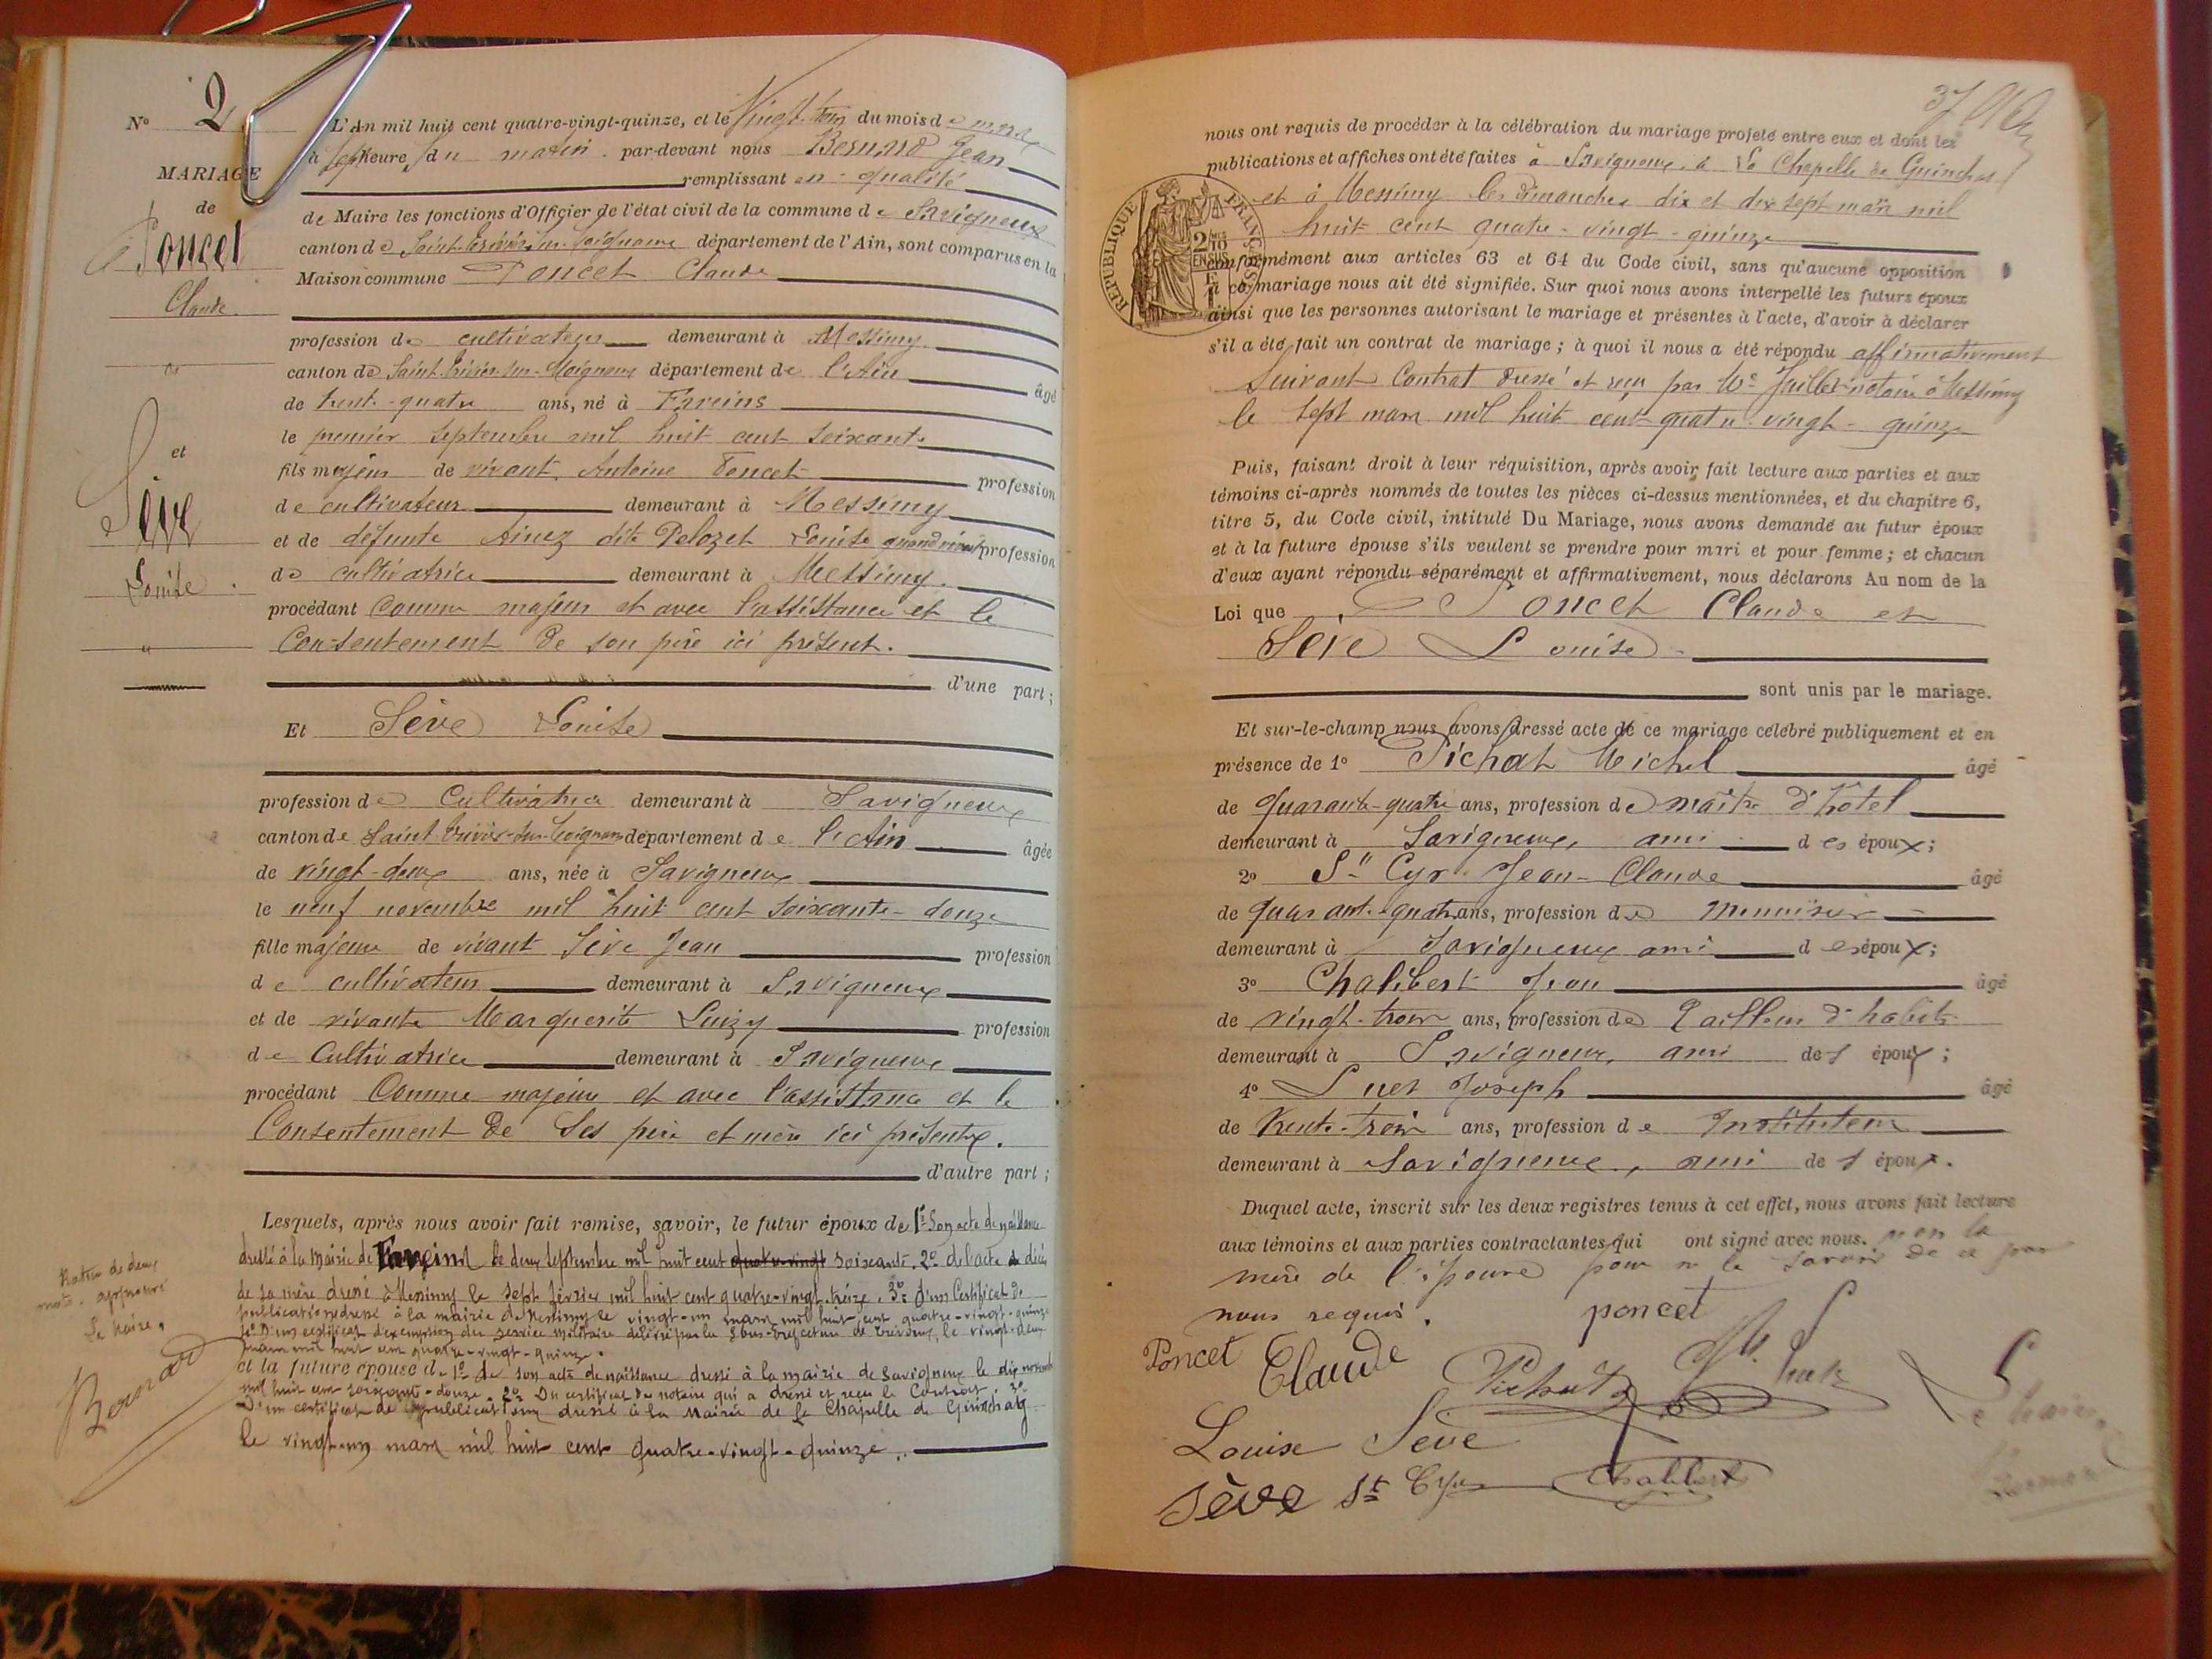 N° 2
MARIAGE
de
Poncet
Claude
et
Sève
Louise
L'An mil huit cent quatre-vingt-quinze, et le Vingt-trois du mois de mars
à sept heures du matin par-devant nous Bernard Jean
remplissant en qualité
de Maire les fonctions d'Officier de l'état civil de la commune de Savigneux
canton de Saint-Trivier-sur-Moignans département de l'Ain, sont comparus en la
Maison commune Poncet Claude
profession de cultivateur demeurant à Messimy
canton de Saint-Trivier-sur-Moignans département de l'Ain âgé
de trente-quatre ans, né à Fareins
le premier septembre mil huit cent soixante
fils majeur de vivant Antoine Poncet profession
de cultivateur demeurant à Messimy
et de défunte Ainez dite Pelozet Louise quand vivait profession
de cultivatrice demeurant à Messimy
procédant comme majeur et avec l'assistance et le
Consentement de son père ici présent.
d'une part;
Et Sève Louise
profession de Cultivatrice demeurant à Savigneux
canton de Saint-Trivier-sur-Moignans département de l'Ain âgée
de vingt-deux ans, née à Savigneux
le neuf novembre mil huit cent soixante-douze
fille majeure de vivant Sève Jean profession
de cultivateur demeurant à Savigneux
et de vivante Marguerite Luizy profession
de Cultivatrice demeurant à Savigneux
procédant Comme majeure et avec l'assistance et le
Consentement de Ses père et mère ici présents.
d'autre part;
Lesquels, après nous avoir fait remise, savoir, le futur époux de 1° Son acte de naissance
dressé à la Mairie de Fareins le deux septembre mil huit cent quatre-vingt soixante. 2° de l'acte de décès
de sa mère dressé à Messimy le sept février mil huit cent quatre-vingt-treize. 3° d'un Certificat de
publication dressé à la mairie de Messimy le vingt-un mars mil huit cent quatre-vingt-quinze
4° D'un certificat d'exemption du service militaire délivré par la Sous-Préfecture de Trévoux, le vingt-deux
mars mil huit cent quatre-vingt-quinze.
et la future épouse de 1° de son acte de naissance dressé à la mairie de Savigneux le dix novembre
mil huit cent soixante-douze. 2° Du certificat du notaire qui a dressé et reçu le Contrat. 3°
D'un certificat de publication dressé à la Mairie de La Chapelle de Guinchay
le vingt-un mars mil huit cent quatre-vingt-quinze.
Rature de deux
mots approuvé
Le Maire,
Bernard
nous ont requis de procéder à la célébration du mariage projeté entre eux et dont les
publications et affiches ont été faites à Savigneux, à La Chapelle de Guinchay
et à Messimy les dimanches dix et dix sept mars mil
huit cent quatre-vingt-quinze
conformément aux articles 63 et 64 du Code civil, sans qu'aucune opposition
à ce mariage nous ait été signifiée. Sur quoi nous avons interpellé les futurs époux
ainsi que les personnes autorisant le mariage et présentes à l'acte, d'avoir à déclarer
s'il a été fait un contrat de mariage; à quoi il nous a été répondu affirmativement
suivant Contrat dressé et reçu par Me notaire à Messimy
le sept mars mil huit cent quatre-vingt-quinze
RÉPUBLIQUE FRANÇAISE
Puis, faisant droit à leur réquisition, après avoir fait lecture aux parties et aux
témoins ci-après nommés de toutes les pièces ci-dessus mentionnées, et du chapitre 6,
titre 5, du Code civil, intitulé Du Mariage, nous avons demandé au futur époux
et à la future épouse s'ils veulent se prendre pour mari et pour femme; et chacun
d'eux ayant répondu séparément et affirmativement, nous déclarons Au nom de la
Loi que Poncet Claude et
Sève Louise
sont unis par le mariage.
Et sur-le-champ nous avons dressé acte de ce mariage célébré publiquement et en
présence de 1° Pichat Michel âgé
de quarante-quatre ans, profession de maître d'hôtel
demeurant à Savigneux, ami des époux;
2° St Cyr Jean-Claude âgé
de quarante-quatre ans, profession de menuisier
demeurant à Savigneux ami des époux;
3° Chalibert Jean âgé
de vingt-trois ans, profession de Tailleur d'habits
demeurant à Savigneux, ami des époux;
4° Luet Joseph âgé
de trente-trois ans, profession de Instituteur
demeurant à Savigneux, ami des époux.
Duquel acte, inscrit sur les deux registres tenus à cet effet, nous avons fait lecture
aux témoins et aux parties contractantes qui ont signé avec nous. non la
mère de l'épouse pour ne le savoir de ce par
nous requis.
poncet
Poncet Claude Pichat
Louise Sève
Sève St Cyr Chalibert
Le Maire,
Bernard